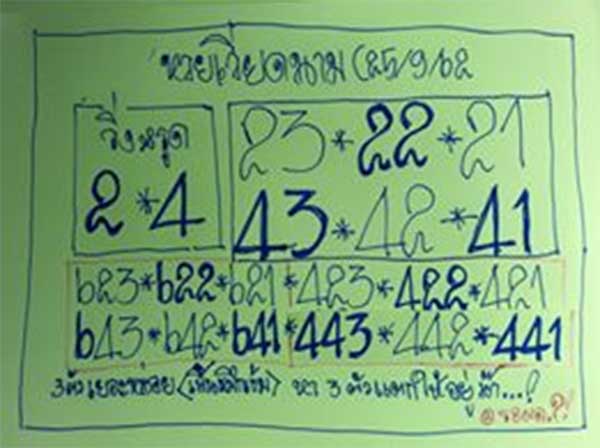 หวยเวียดนาม (25/9/62
วิ่งหรูด
2*4
23*22*21
43*42*41
623*622*621*423*422*421
643*642*641*443*442*441
3ตัวเยอะหน่อย (เน้นสีเข้ม) หา 3 ตัวแตกให้อยู่